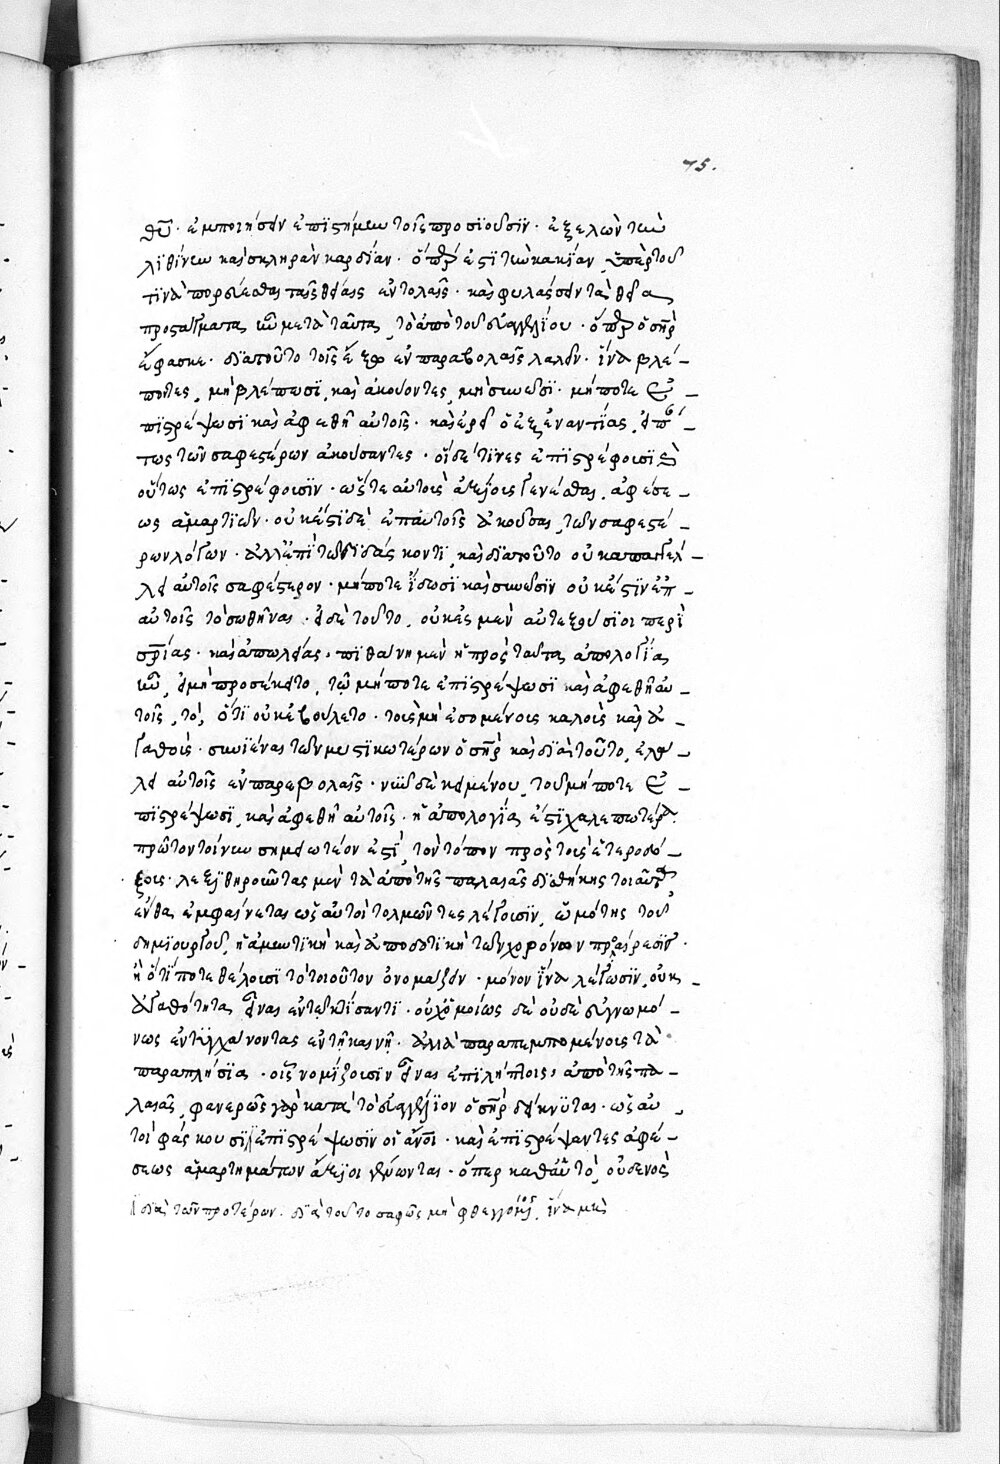 75.
θῦ· ἐμποιῆσαν ἐπιστήμην τοῖς προσϊοῦσϊν· ἐξελὼν τὴν
λϊθίνην καὶ σκληρὰν καρδίαν· ὅπερ ἐστὶ τὴν κακίαν, ὑπὲρ τοῦ
τϊνὰ πορεύεσθαι ταῖς θείαις ἐντολαῖς· καὶ φυλάσσειν τὰ θεῖα
προστάγματα, μετὰ ταῦτα, τὸ ἀπὸ τοῦ εὐαγγελίου· ὅπερ ὁ σὴρ
ἔφασκε· διὰ τοῦτο τοῖς ἔξω ἐν παραβολαῖς λαλεῖν· ἵνα βλέ-
ποντες, μὴ βλέπωσϊ, καὶ ἀκούοντες, μὴ συνῶσϊ· μήποτε ἐ-
πϊστρέψωσϊ καὶ ἀφεθῇ αὐτοῖς· καὶ ἐρεῖ ὁ ἐξεναντίας, εἰ πάν-
τως τῶν σαφεστέρων ἀκούσαντες· οἵδέ τϊνες ἐπϊστρέφουσϊ καὶ
οὕτως ἐπϊστρέφουσϊν· ὥστε αὐτοὺς ἀξίους γενέσθαι, ἀφέσε-
ως ἁμαρτϊῶν· οὐκ ἔστϊ δὲ ἐπ' αὐτοῖς ἀκοῦσαι, τῶν σαφεστέ-
ρων λόγων· ἀλλ' ἐπὶ τῷ διδάσκοντϊ, καὶ διὰ τοῦτο οὐκ ἀπαγγέλ-
λει αὐτοῖς σαφέστερον· μήποτε ἴδωσϊ καὶ συνῶσϊν οὐκ ἔστϊν ἐπ'
αὐτοῖς τὸ σωθῆναι· εἰ δὲ τοῦτο, οὐκ ἐσμὲν αὐτεξούσϊοι περὶ
σρίας· καὶ ἀπωλείας, πϊθανὴ μὲν ἡ πρὸς ταῦτα ἀπολογία
ἦν, εἰ μὴ προσέκειτο, τῷ μήποτε ἐπϊστρέψωσϊ καὶ ἀφεθῇ αὐ-
τοῖς, τό, ὅτϊ οὐκ ἐβούλετο· τοὺς μὴ ἐσομένους καλοὺς καὶ ἀ-
γαθοὺς· συνϊέναι τῶν μυστϊκωτέρων ὁ σὴρ καὶ διὰ τοῦτο, ἐλά-
λει αὐτοῖς ἐν παραβολαῖς· νῦν δὲ κειμένου, τοῦ μήποτε ἐ-
πϊστρέψωσϊ, καὶ ἀφεθῇ αὐτοῖς· ἡ ἀπολογία ἐστὶ χαλεπωτέρα·
πρῶτον τοίνυν σημειωτέον ἐστὶ, τὸν τόπον πρὸς τοὺς ἑτεροδό-
ξους· λεξϊθηροῦντας μὲν τὰ ἀπὸ τῆς παλαιᾶς διαθήκης τοιαῦτα
ἔνθα ἐμφαίνεται ὡς αὐτοὶ τολμῶντες λέγουσϊν, ὠμότης τοῦ
δημϊουργοῦ, ἢ ἀμυντϊκὴ καὶ ἀποδοτϊκὴ τῶν χειρόνων προαίρεσϊς·
ἢ ὅτϊ ποτε θέλουσϊ τὸ τοιοῦτον ὀνομάζειν· μόνον ἵνα λέγωσϊν, οὐκ
ἀγαθότητα εἶναι ἐν τῷ κτίσαντϊ· οὐχ' ὁμοίως δὲ οὐδὲ εὐγνωμό-
νως ἐντυγχάνοντας ἐν τῇ καινῇ· ἀλλὰ παραπεμπομένους τὰ
παραπλήσϊα· οἷς νομίζουσϊν εἶναι ἐπϊλήπτοις, ἀπὸ τῆς πα-
λαιᾶς, φανερῶς γὰρ κατὰ τὸ εὐαγγέλϊον ὁ σὴρ δείκνυται· ὡς αὐ-
τοί φάσκουσϊ ἐπϊστρέψωσϊν οἱ ἄνοι· καὶ ἐπϊστρέψαντες ἀφέ-
σεως ἁμαρτημάτων ἄξϊοι γένωνται· ὅπερ καθ' αὑτὸ, οὐδενὸς
διὰ τῶν προτέρων· διὰ τοῦτο σαφῶς μὴ φθεγγόμενος, ἵνα μὴ